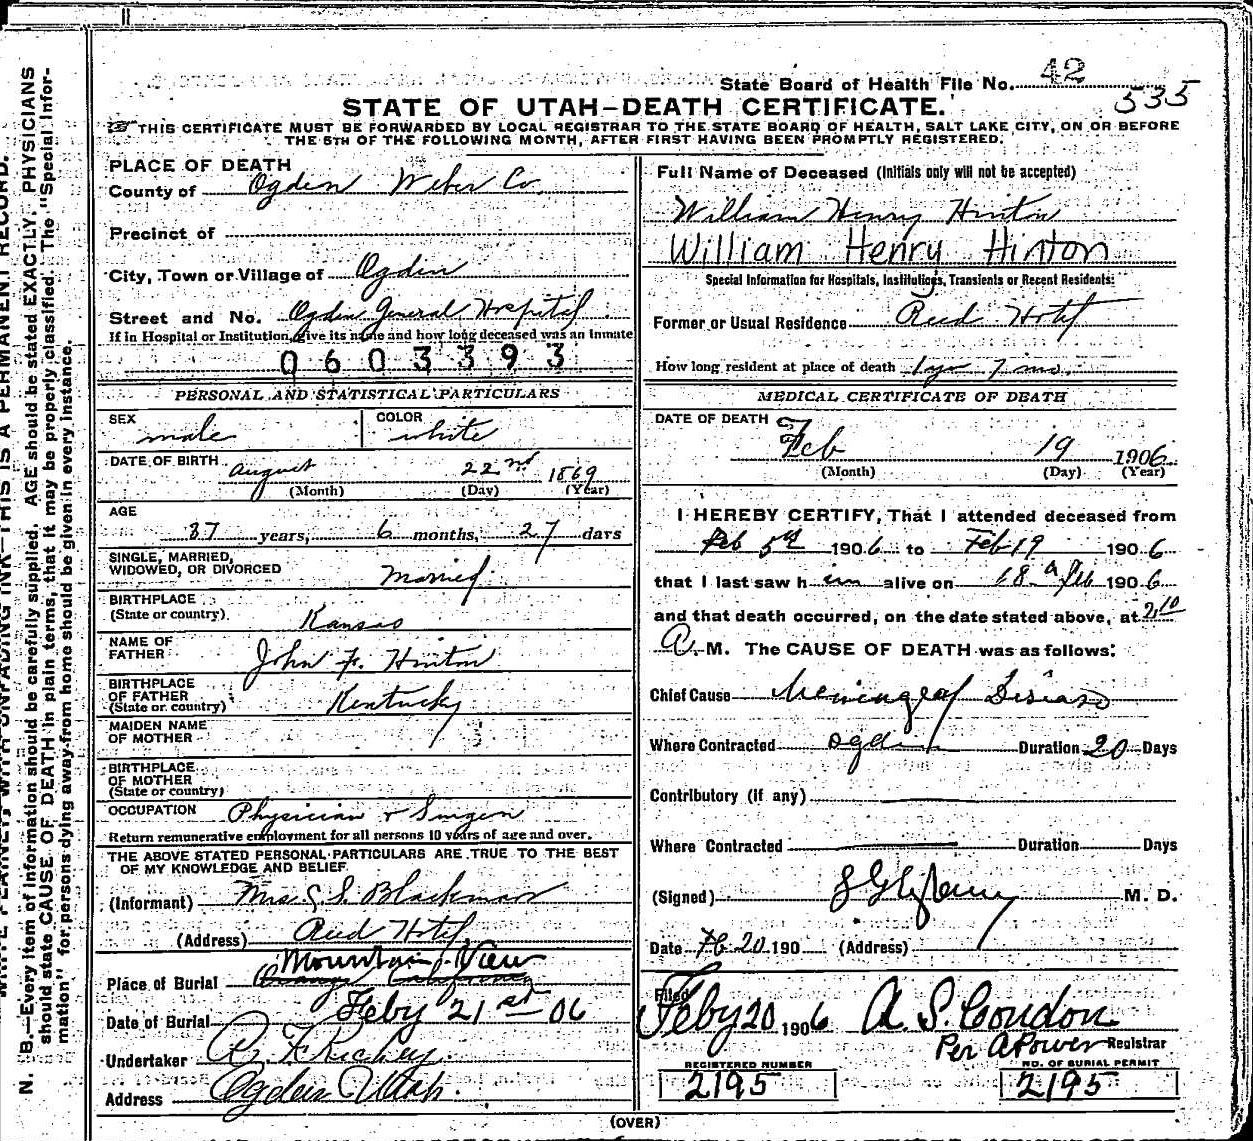 State Board of Health File No. 42
535
STATE OF UTAH—DEATH CERTIFICATE.
THIS CERTIFICATE MUST BE FORWARDED BY LOCAL REGISTRAR TO THE STATE BOARD OF HEALTH, SALT LAKE CITY, ON OR BEFORE
THE 5TH OF THE FOLLOWING MONTH, AFTER FIRST HAVING BEEN PROMPTLY REGISTERED.
PLACE OF DEATH
County of Ogden Weber Co
Precinct of
City, Town or Village of Ogden
Street and No. Ogden General Hospital
If in Hospital or Institution, give its name and how long deceased was an inmate
0603393
PERSONAL AND STATISTICAL PARTICULARS
SEX male
COLOR white
DATE OF BIRTH August 22nd 1869
(Month) (Day) (Year)
AGE
37 years, 6 months, 27 days
SINGLE, MARRIED,
WIDOWED, OR DIVORCED Married
BIRTHPLACE
(State or country) Kansas
NAME OF
FATHER John F. Hinton
BIRTHPLACE
OF FATHER
(State or country) Kentucky
MAIDEN NAME
OF MOTHER
BIRTHPLACE
OF MOTHER
(State or country)
OCCUPATION Physician & Surgen
Return remunerative employment for all persons 10 years of age and over.
THE ABOVE STATED PERSONAL PARTICULARS ARE TRUE TO THE BEST
OF MY KNOWLEDGE AND BELIEF
(Informant) Mrs. S. S. Blackman
(Address) Reed Hotel
Mountain View
Place of Burial Orange California
Date of Burial Feby 21st 06
Undertaker Richey
Address Ogden Utah.
Full Name of Deceased (Initials only will not be accepted)
William Henry Hinton
William Henry Hinton
Special Information for Hospitals, Institutions, Transients or Recent Residents:
Former or Usual Residence Reed Hotel
How long resident at place of death 1 yr 7 mo.
MEDICAL CERTIFICATE OF DEATH
DATE OF DEATH
Feb 19 1906
(Month) (Day) (Year)
I HEREBY CERTIFY, That I attended deceased from
Feb 5th 1906 to Feb 19 1906
that I last saw him alive on 18 Feb 1906
and that death occurred, on the date stated above, at 2.10
A. M. The CAUSE OF DEATH was as follows:
Chief Cause Meningeal Disease
Where Contracted Ogden Duration 20 Days
Contributory (if any)
Where Contracted Duration Days
(Signed) M. D.
Date Feb 20 190 (Address)
Filed
Feby 20 1906 A. S. Condon
Per A Power Registrar
REGISTERED NUMBER
2195
NO. OF BURIAL PERMIT
2195
(OVER)
N. B.—Every item of information should be carefully supplied. AGE should be stated EXACTLY. PHYSICIANS
should state CAUSE OF DEATH in plain terms, that it may be properly classified. The "Special Infor-
mation" for persons dying away from home should be given in every instance.